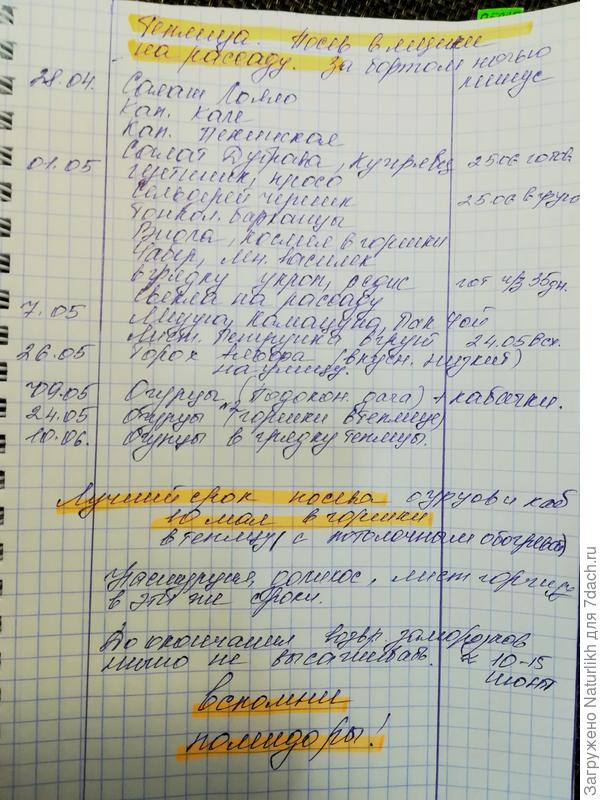 Теплица. Посев в ящики
на рассаду. За бортом ночью минус
28.04. Салат Лолло
Кап. Кале
Кап. Пекинская
Салат Дубрава, кучерявец 25.06 готов
01.05
Сельдерей череш 25.06 в грунт
Тонкол. бархатцы
Виола, космея в горшки
Чабр, лим. василек
в грядку укроп, редис гот ч/з 35дн.
Свекла на рассаду
7.05 Мизуна, Комацуна, Пак Чой
Лист. Петрушка в грунт 24.05 Вск.
26.05 Горох Амброзия (вкусн. низкий)
на улицу.
09.05 Огурцы (Подокон. дача) + кабачки.
24.05 Огурцы (горшки в теплице)
10.06. Огурцы в грядку теплицы.
Лучший срок посева огурцов и каб
10 мая в горшки
в теплицу (с потолочным обогревом)
Настурция, долихос, лист горчица
в эти же сроки.
До окончания возвр. заморозков
ничего не высаживать. ≈ 10-15
июня
вспомни
помидоры!
Загружено Naturlikh для 7dach.ru